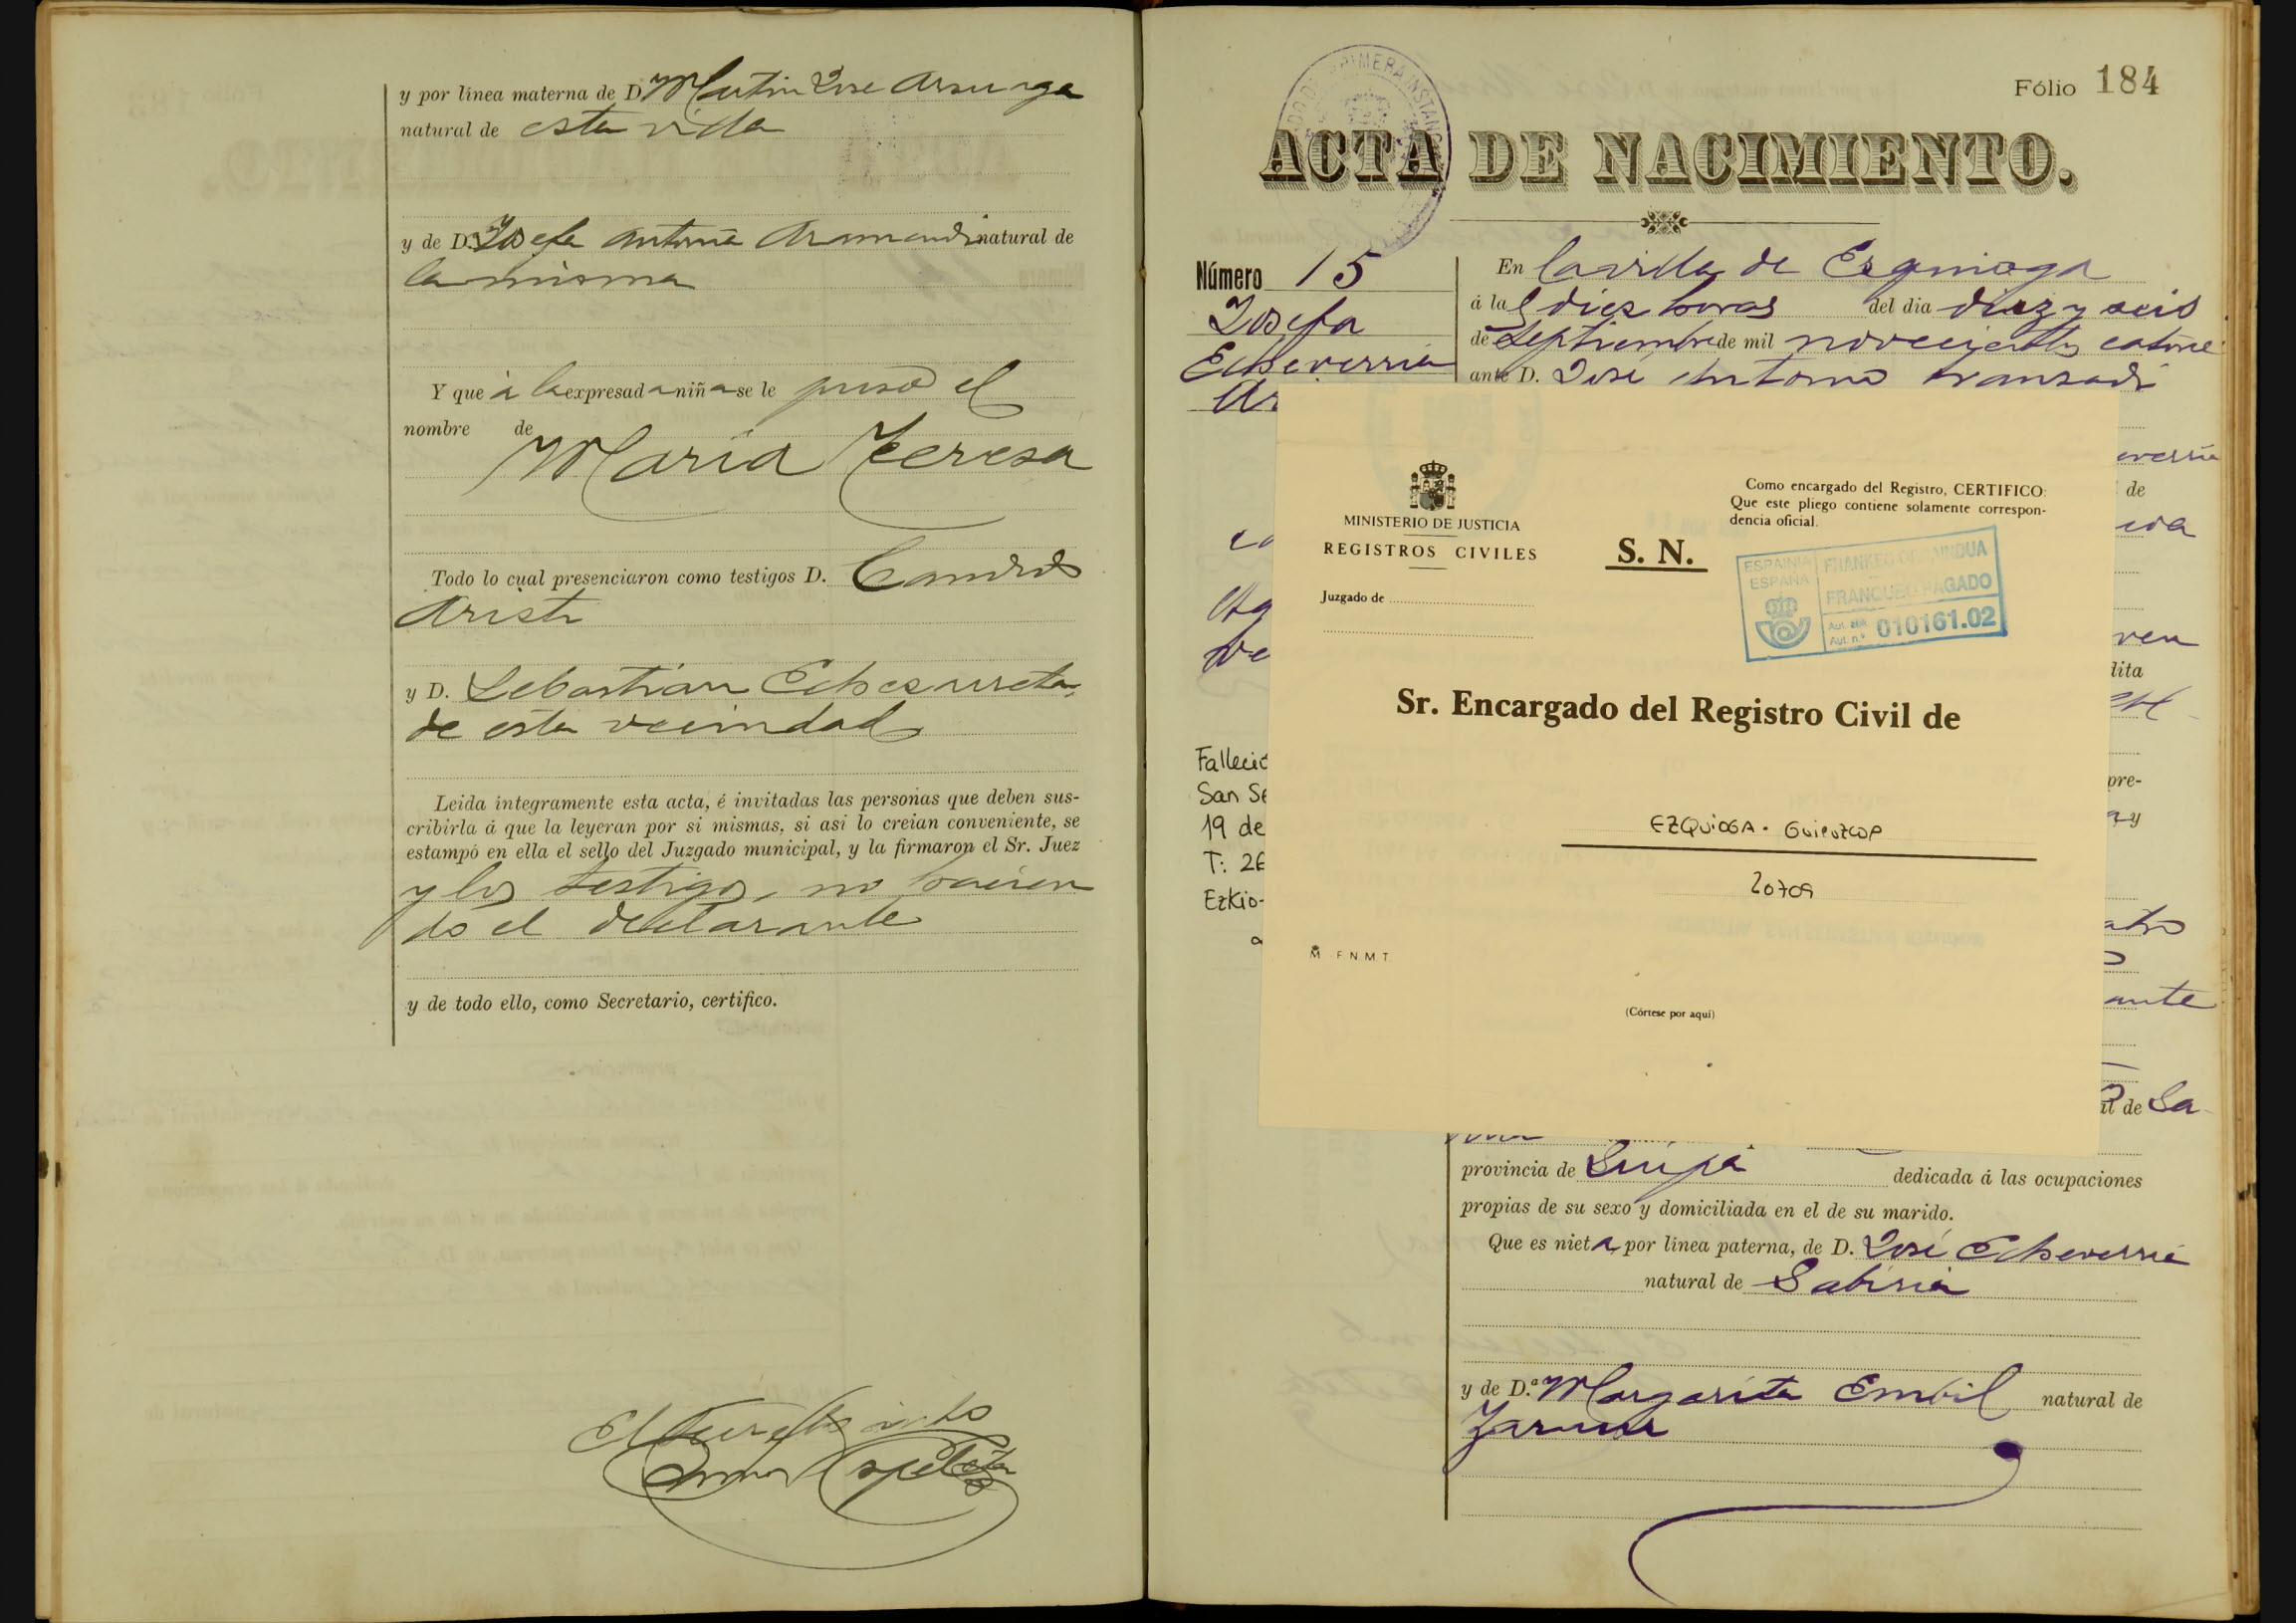 y por línea materna de D. Martin José Arsuaga
natural de esta villa
y de D.ª Josefa Antonia Aramendi natural de
la misma
Y que á la expresada niña se le puso el
nombre de
Maria Teresa
Todo lo cual presenciaron como testigos D. Candido
Aristi
y D. Sebastian Echezarreta,
de esta vecindad
Leida íntegramente esta acta, é invitadas las personas que deben sus-
cribirla á que la leyeran por si mismas, si asi lo creian conveniente, se
estampó en ella el sello del Juzgado municipal, y la firmaron el Sr. Juez
y los testigos, no hacien
do el declarante
y de todo ello, como Secretario, certifico.
Fólio 184
ACTA DE NACIMIENTO.
Número 15
Josefa
Echeverria
Ar
En la villa de Ezquioga
á las diez horas del dia diez y seis
de Septiembre de mil novecientos catorce
ante D. José Antonio Aranzadi
everria
de
Fallecio
San Se
19 de
T: 26
Ezkio-
a
ven
dita
pre-
a y
ante
de Sa
MINISTERIO DE JUSTICIA
REGISTROS CIVILES
Juzgado de
S. N.
Como encargado del Registro, CERTIFICO:
Que este pliego contiene solamente correspon-
dencia oficial.
ESPAINIA
ESPAÑA
FRANKEO ORDAINDUA
FRANQUEO PAGADO
Aut. zbk
Aut. n.º 010161.02
Sr. Encargado del Registro Civil de
EZQUIOGA - GUIPUZCOA
20709
F.N.M.T.
(Córtese por aquí)
provincia de Guipª dedicada á las ocupaciones
propias de su sexo y domiciliada en el de su marido.
Que es nieta por línea paterna, de D. José Echeverria
natural de Gabiria
y de D.ª Margarita Embil natural de
Zarauz